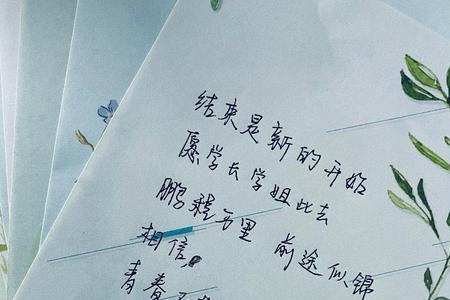 结束是新的开始
愿学长学姐此去
鹏程万里 前途似锦
相信
青春